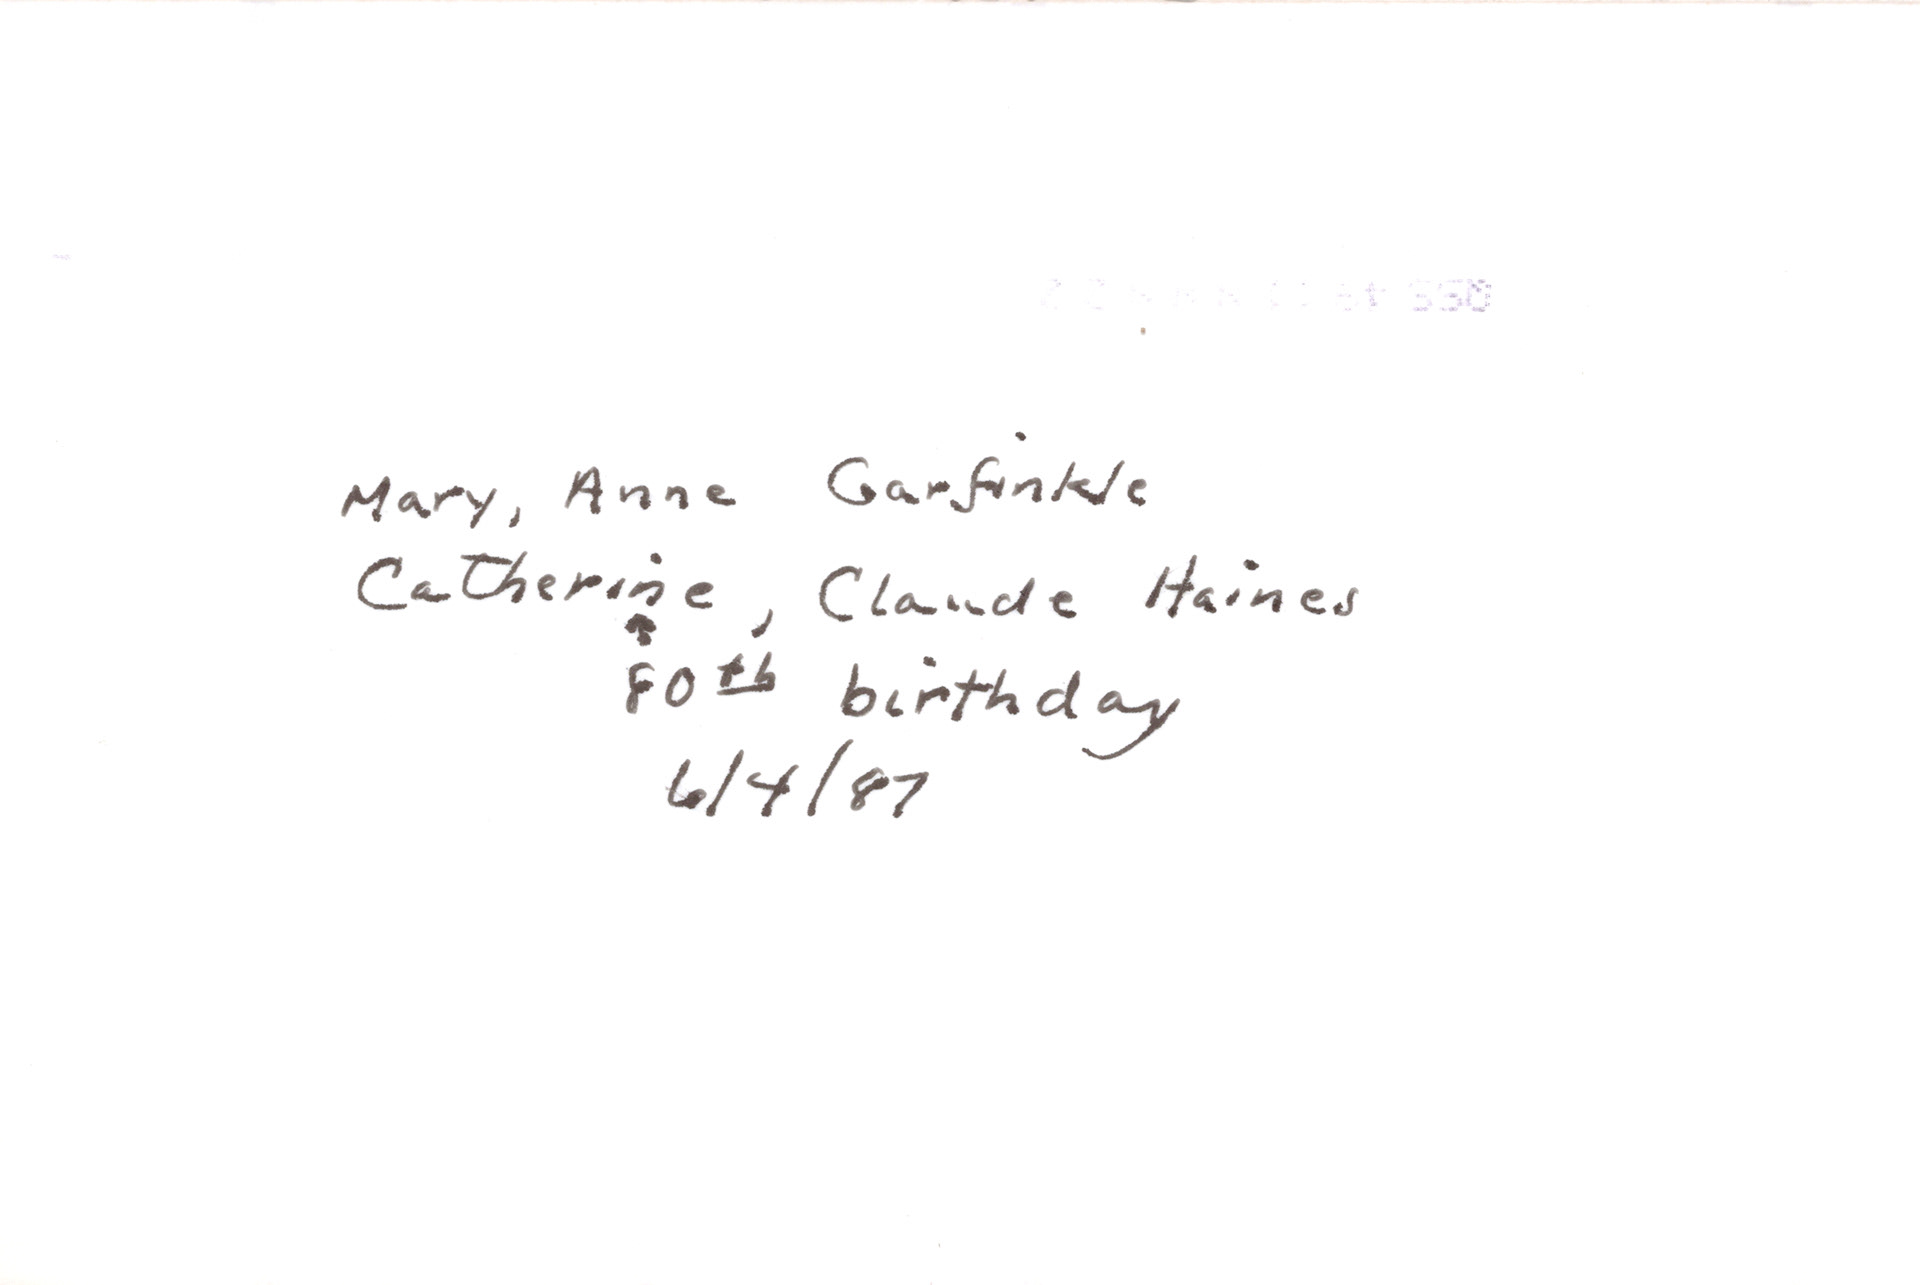 Mary, Anne Garfinkle
Catherine, Claude Haines
↑
80th birthday
6/4/87